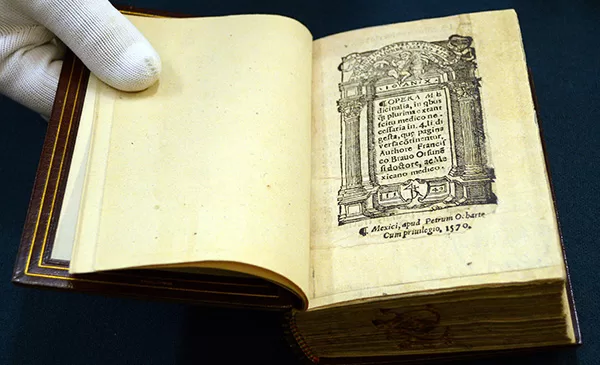 IOANIX
¶ OPERA ME
dicinalia, in qbus
q̃ plurima extant
scitu medico ne-
cessaria in .4. li di
gesta, que pagina
versa cõtinentur.
Authore Francis
co Brauo Orsuneñ
si doctore, ac Me
xicano medico.
¶ Mexici, apud Petrum Ocharte
Cum priuilegio, 1570.